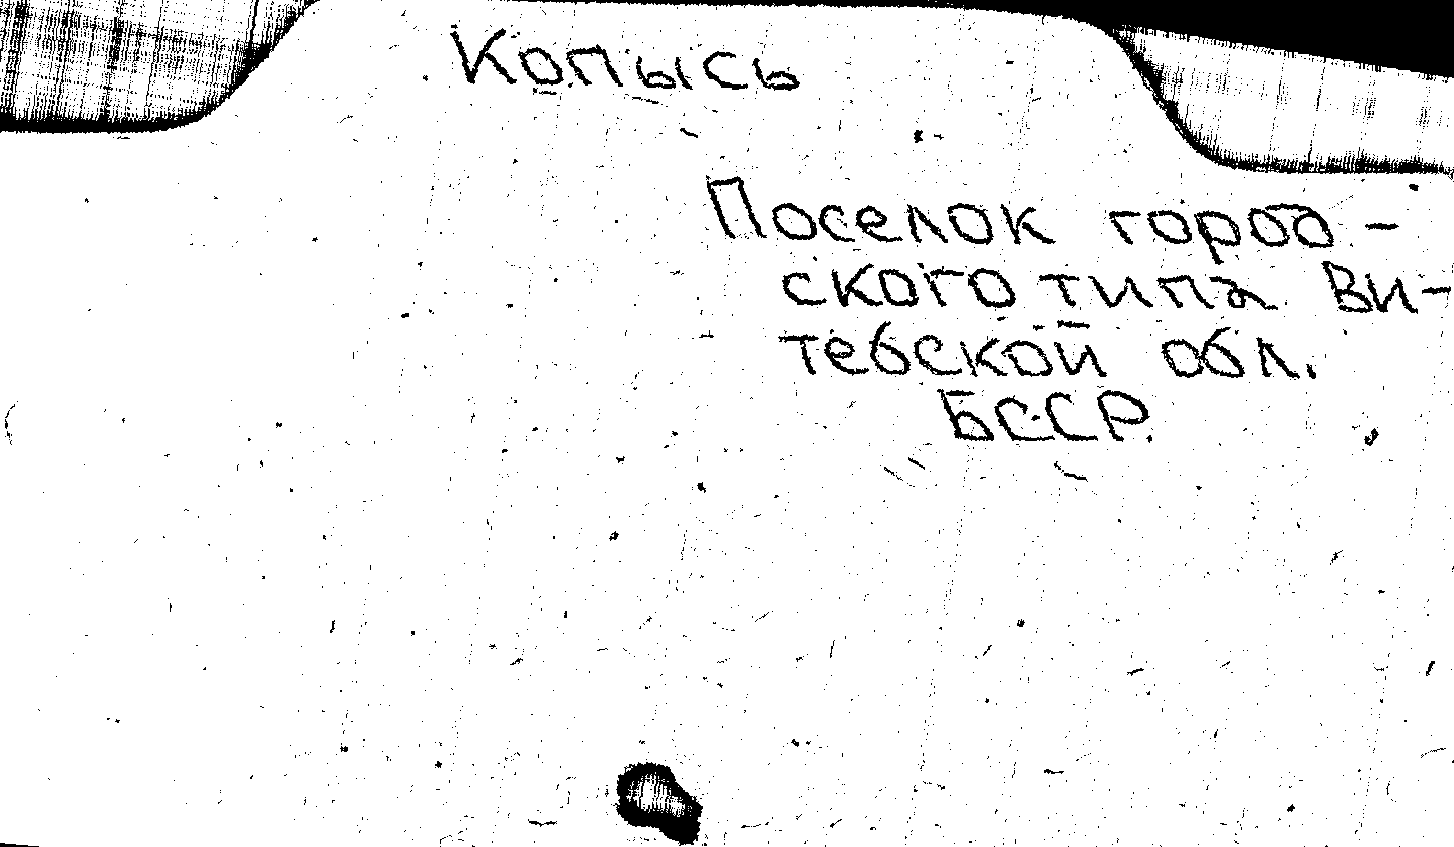 Копысь
Поселок город-
ского типа Ви-
тебской обл.
БССР.